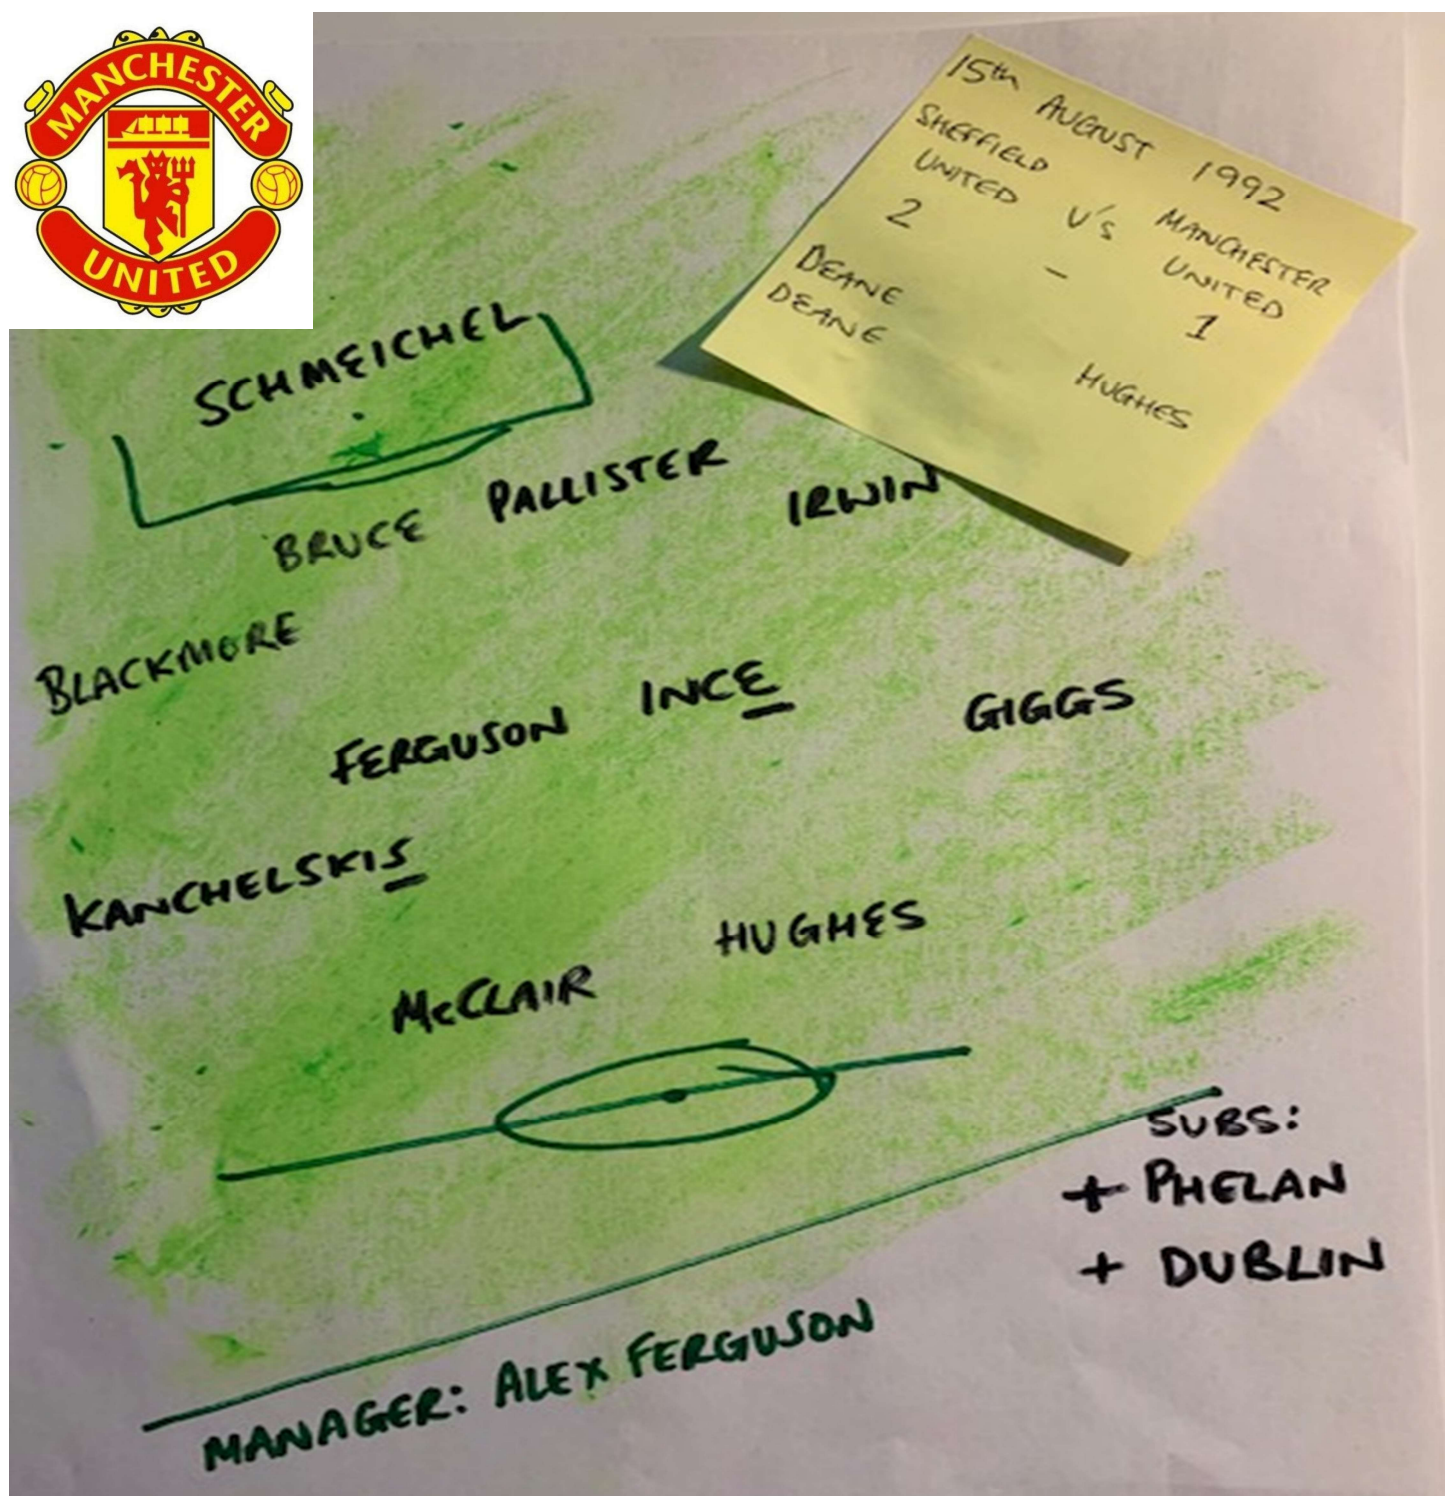 MANCHESTER
UNITED
15th AUGUST 1992
SHEFFIELD UNITED V'S MANCHESTER UNITED
2 - 1
DEANE
DEANE
HUGHES
SCHMEICHEL
BRUCE PALLISTER IRWIN
BLACKMORE
FERGUSON INCE GIGGS
KANCHELSKIS
McCLAIR HUGHES
SUBS:
+ PHELAN
+ DUBLIN
MANAGER: ALEX FERGUSON